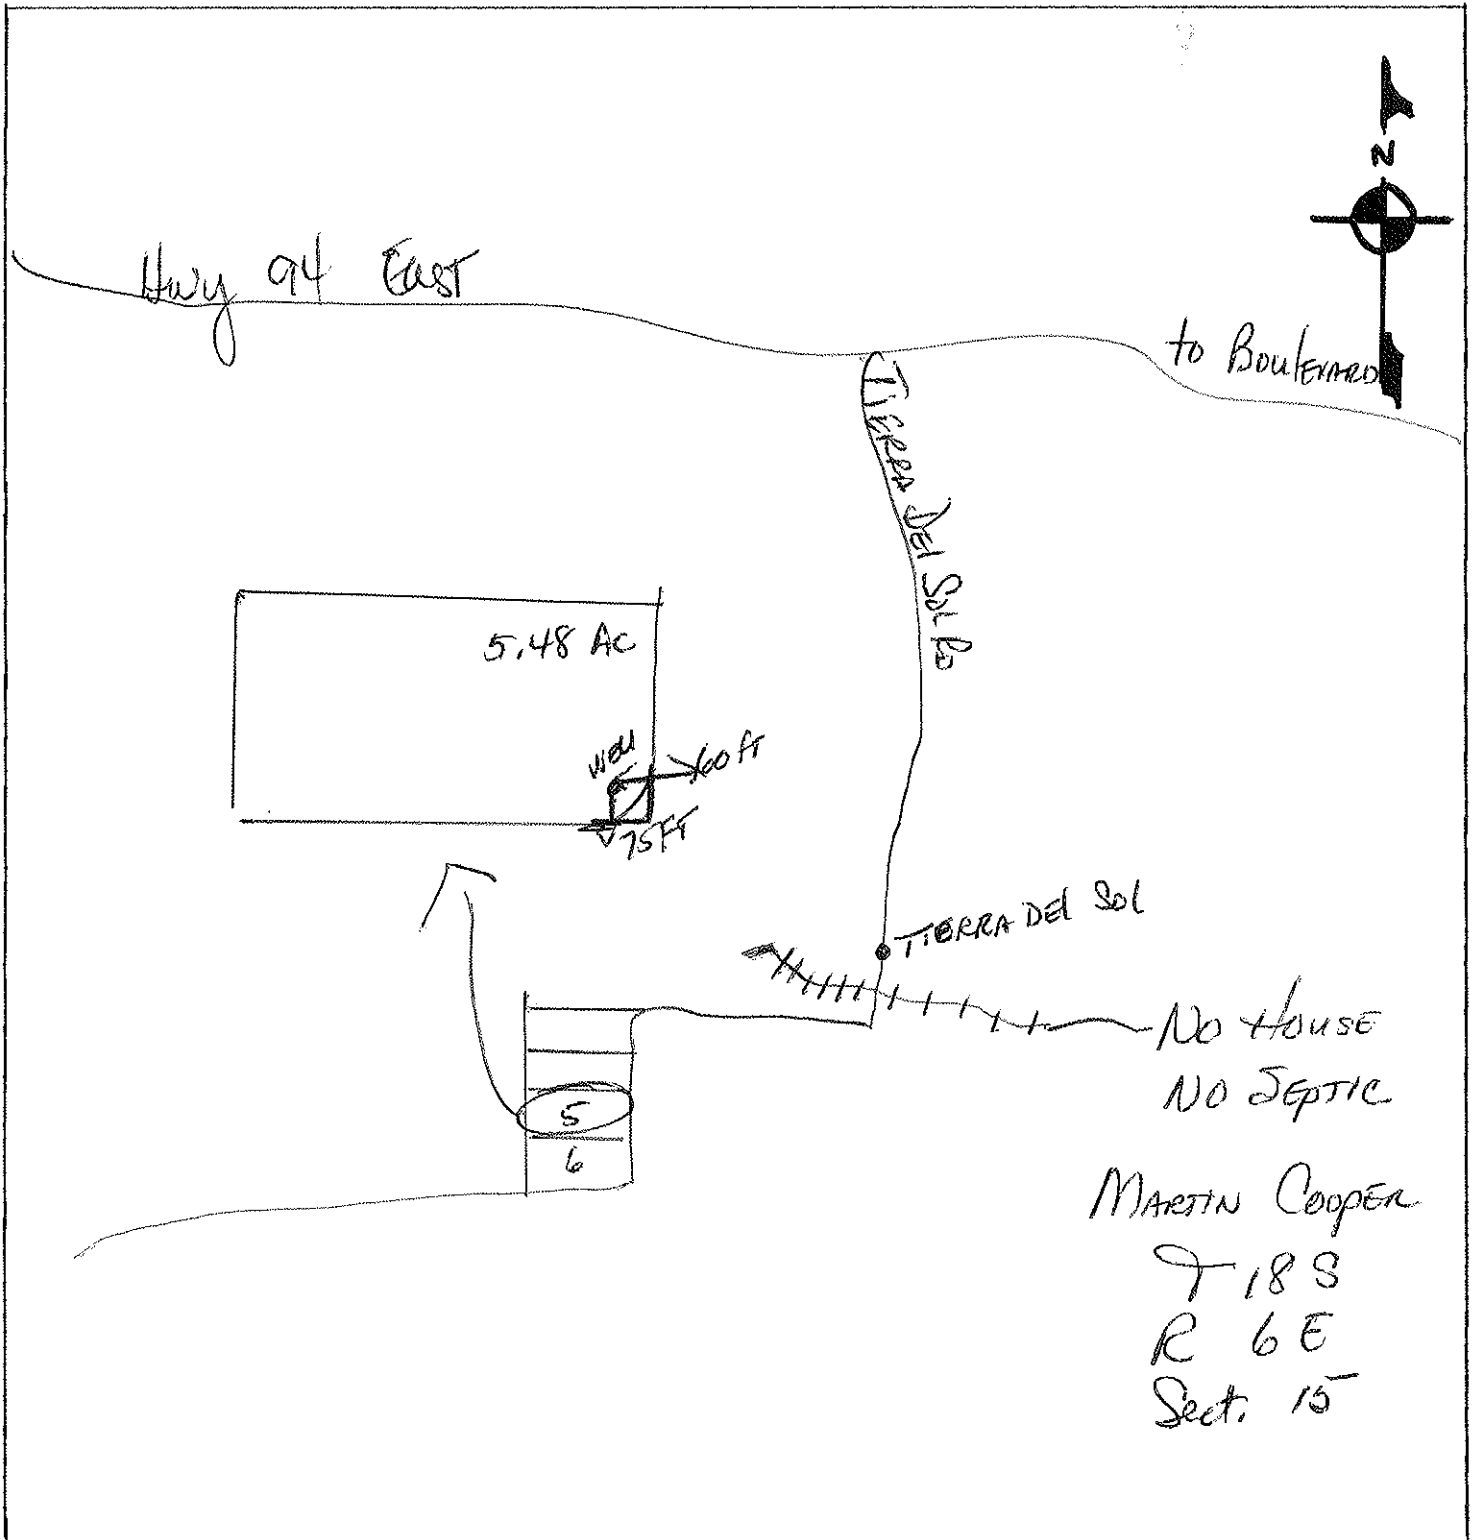 N
Hwy 94 East
to Boulevard
Tierra Del Sol Rd
5.48 Ac
well
60 ft
75 FT
Tierra Del Sol
No House
No Septic
5
6
Martin Cooper
T 18 S
R 6 E
Sect. 15